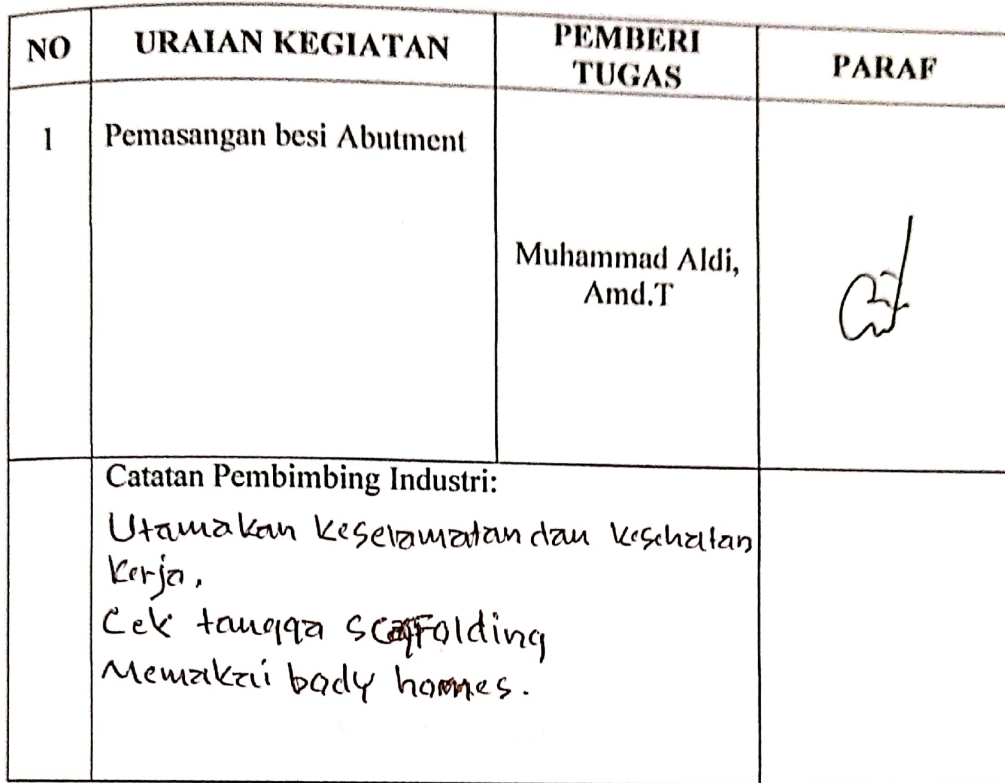 NO
URAIAN KEGIATAN
PEMBERI
TUGAS
PARAF
1
Pemasangan besi Abutment
Muhammad Aldi,
Amd.T
Catatan Pembimbing Industri:
Utamakan keselamatan dan kesehatan
kerja,
Cek tangga scaffolding
Memakai body